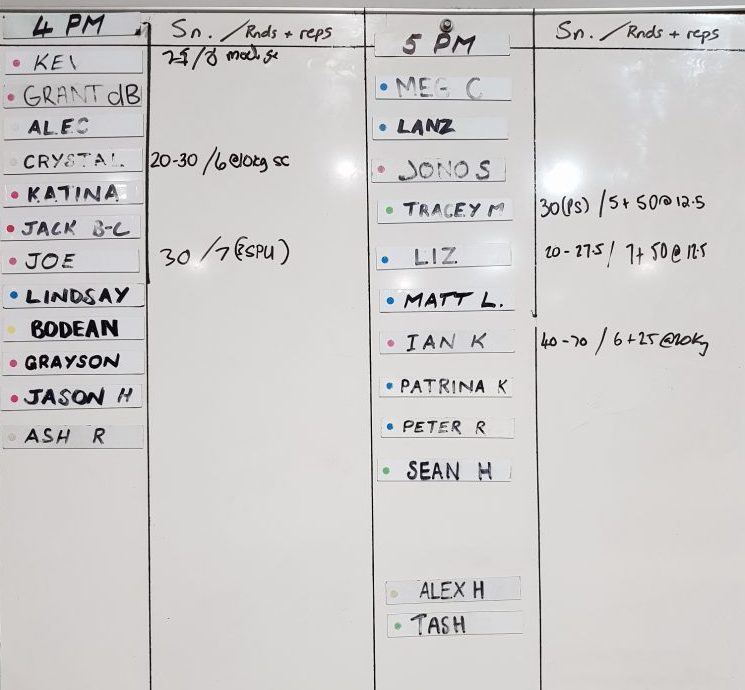 4 PM
Sn. / Rnds + reps
KEI
GRANT dB
ALEC
CRYSTAL 20-30 / 6 @10kg SC
KATINA
JACK B-C
JOE 30 / 7
LINDSAY
BODEAN
GRAYSON
JASON H
ASH R
5 PM
Sn. / Rnds + reps
MEG C
LANZ
JONO S
TRACEY M 30(PS) / 5 + 50 @ 12.5
LIZ 20-27.5 / 7 + 50 @ 12.5
MATT L.
IAN K 40-70 / 6 + 25 @20kg
PATRINA K
PETER R
SEAN H
ALEX H
TASH